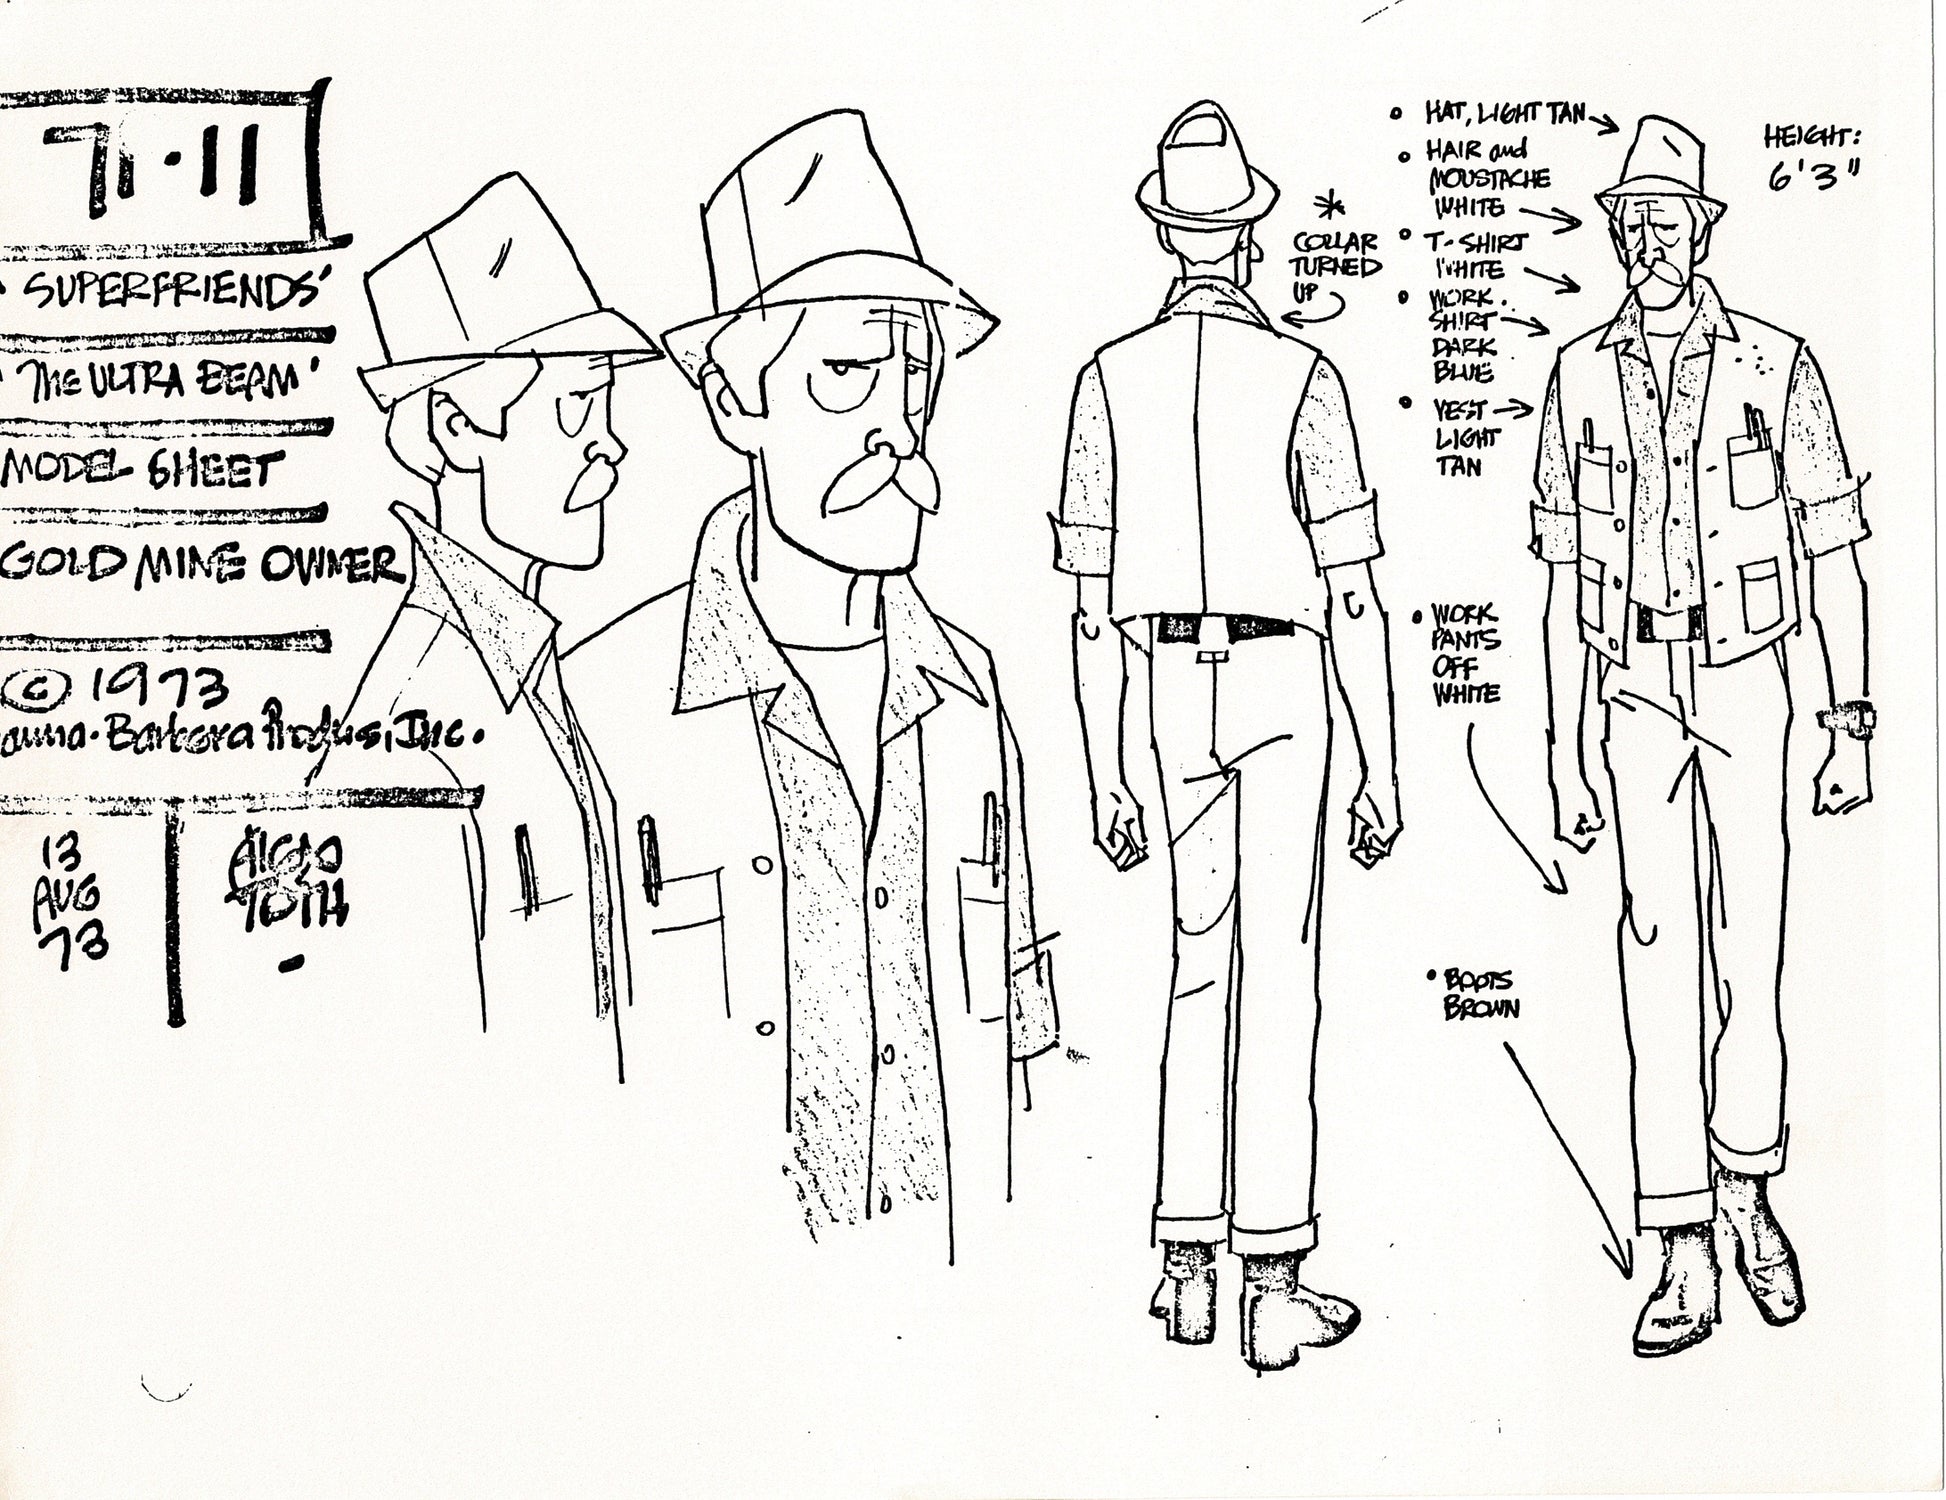 71·11
'SUPERFRIENDS'
'THE ULTRA BEAM'
MODEL SHEET
GOLD MINE OWNER
© 1973
anna-Barbera Prod'ns, Inc.
13
AUG
73
ALEX
TOTH
*
COLLAR
TURNED
UP
• HAT, LIGHT TAN
• HAIR and
MOUSTACHE
WHITE
• T-SHIRT
WHITE
• WORK
SHIRT
DARK
BLUE
• VEST
LIGHT
TAN
• WORK
PANTS
OFF
WHITE
• BOOTS
BROWN
HEIGHT:
6'3"